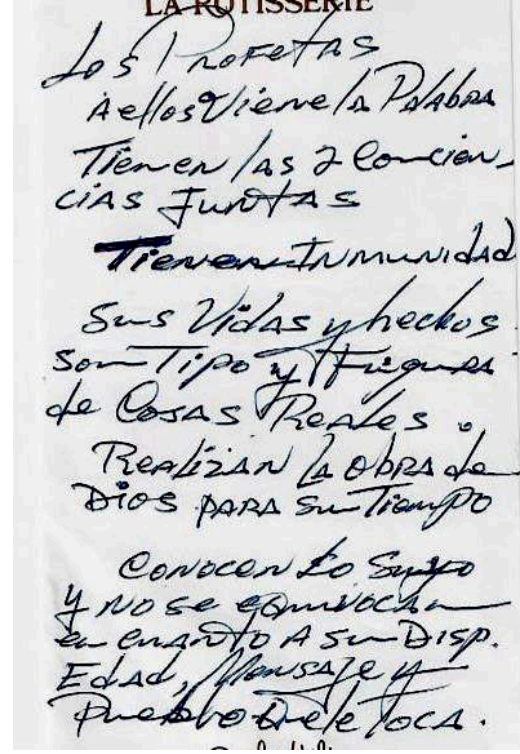 LA ROTISSERIE
Los Profetas
A ellos Viene la Palabra
Tienen las 2 Concien-
cias Juntas
Tienen Inmunidad
Sus Vidas y hechos
son Tipo y Figura
de Cosas Reales.
Realizan la obra de
Dios para su Tiempo
Conocen Lo Suyo
y no se equivocan
en cuanto a su Disp.
Edad, Mensaje y
Pueblo que le toca.